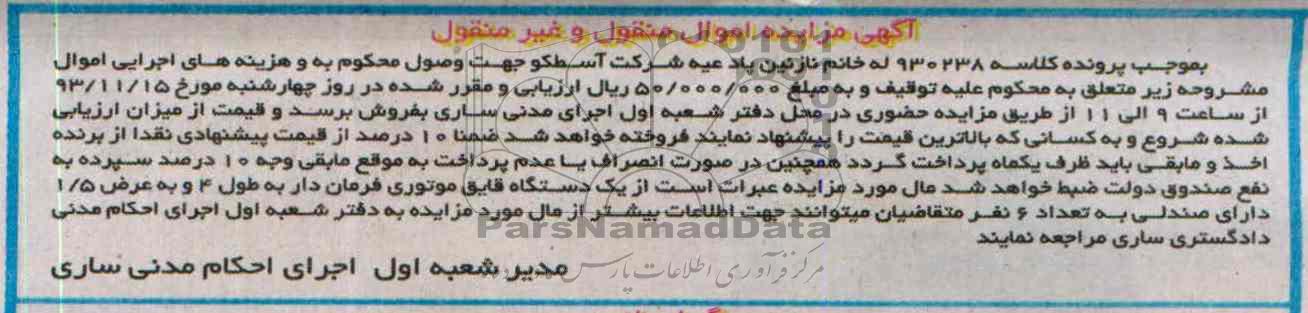 آگهی مزایده اموال منقول و غیر منقول
بموجب پرونده کلاسه ۹۳۰۲۳۸ له خانم نازنین پاد عیه شرکت آسطکو جهت وصول محکوم به و هزینه های اجرایی اموال
مشروحه زیر متعلق به محکوم علیه توقیف و به مبلغ ۵۰/۰۰۰/۰۰۰ ریال ارزیابی و مقرر شده در روز چهارشنبه مورخ ۹۳/۱۱/۱۵
از ساعت ۹ الی ۱۱ از طریق مزایده حضوری در محل دفتر شعبه اول اجرای مدنی ساری بفروش برسد و قیمت از میزان ارزیابی
شده شروع و به کسانی که بالاترین قیمت را پیشنهاد نمایند فروخته خواهد شد ضمنا ۱۰ درصد از قیمت پیشنهادی نقدا از برنده
اخذ و مابقی باید ظرف یکماه پرداخت گردد همچنین در صورت انصراف یا عدم پرداخت به موقع مابقی وجه ۱۰ درصد سپرده به
نفع صندوق دولت ضبط خواهد شد مال مورد مزایده عبرات است از یک دستگاه قایق موتوری فرمان دار به طول ۴ و به عرض ۱/۵
دارای صندلی به تعداد ۶ نفر متقاضیان میتوانند جهت اطلاعات بیشتر از مال مورد مزایده به دفتر شعبه اول اجرای احکام مدنی
دادگستری ساری مراجعه نمایند
ParsNamadData
مرکز فرآوری اطلاعات پارس
مدیر شعبه اول اجرای احکام مدنی ساری